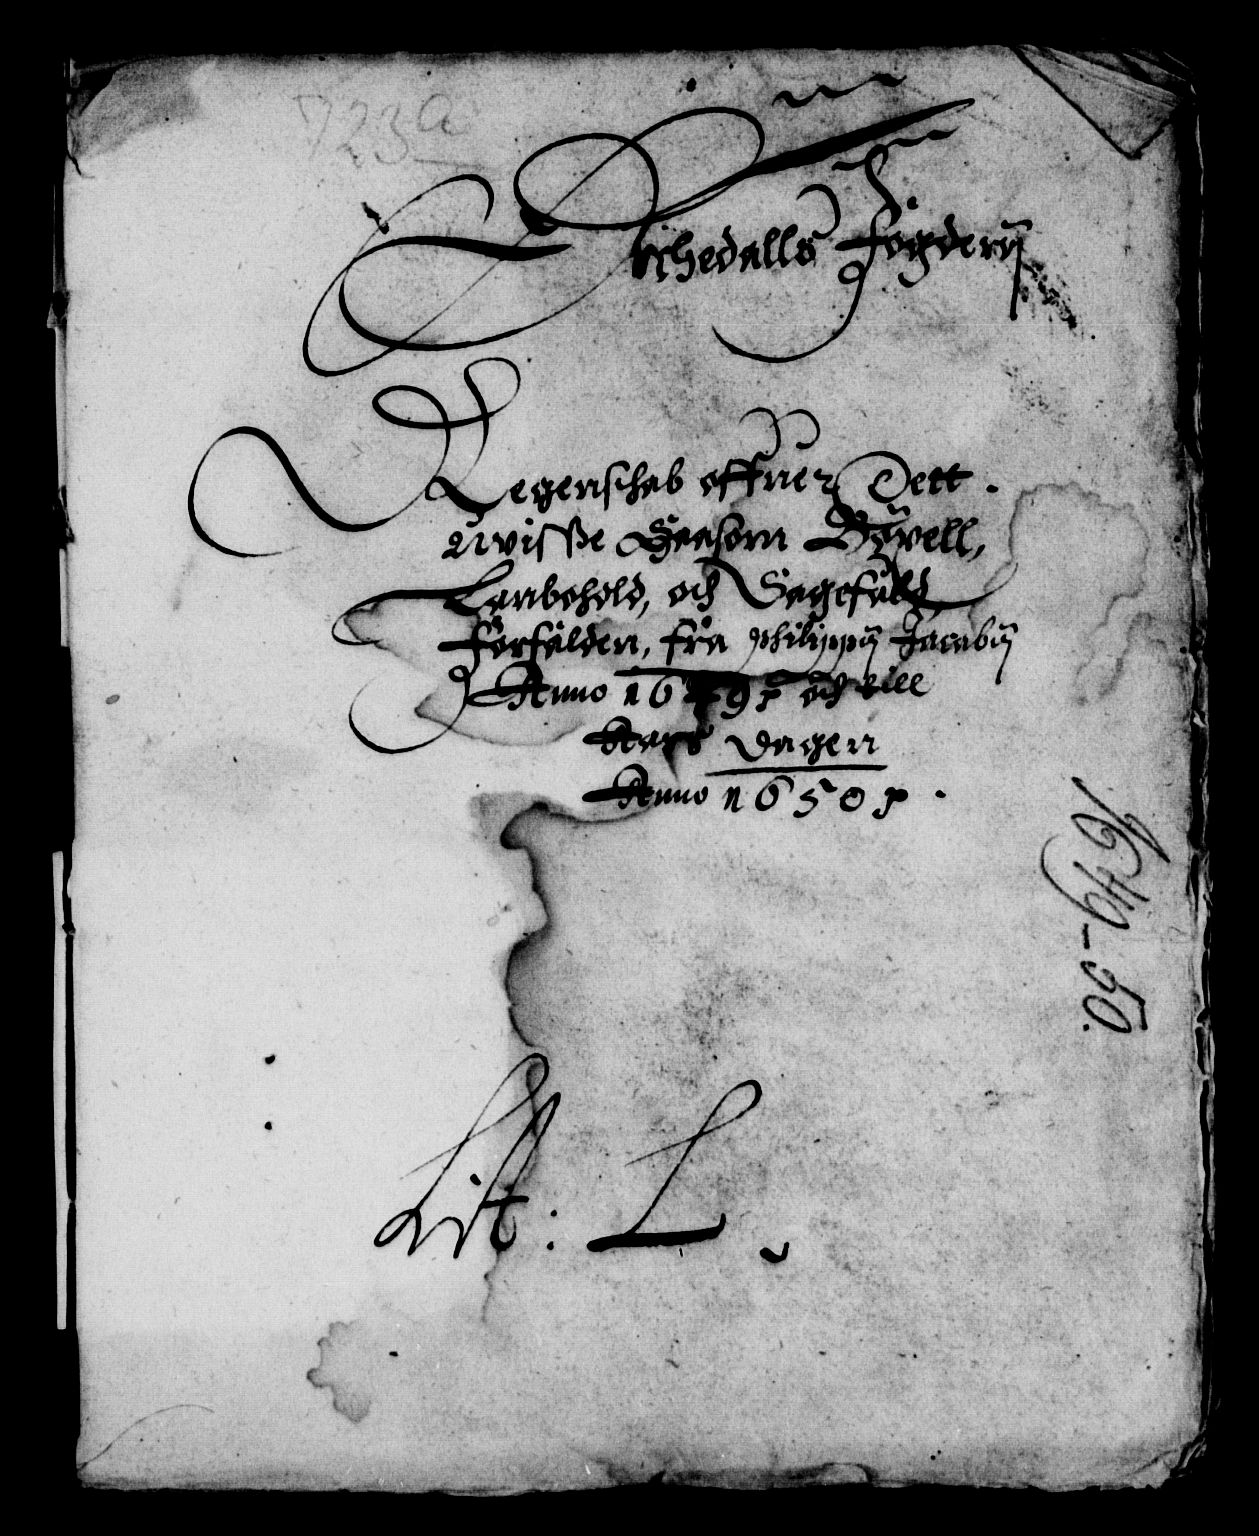 723a
Echedalls Fogderÿ
Regenschab offuer Dett
Uvisse Saasom Bÿxell,
Landbohold, och Sagefald,
Forfalden, fra Philippÿ Jacobÿ
Anno 1649 och till
dagen
Anno 1650.
1649-50.
Lit: L.